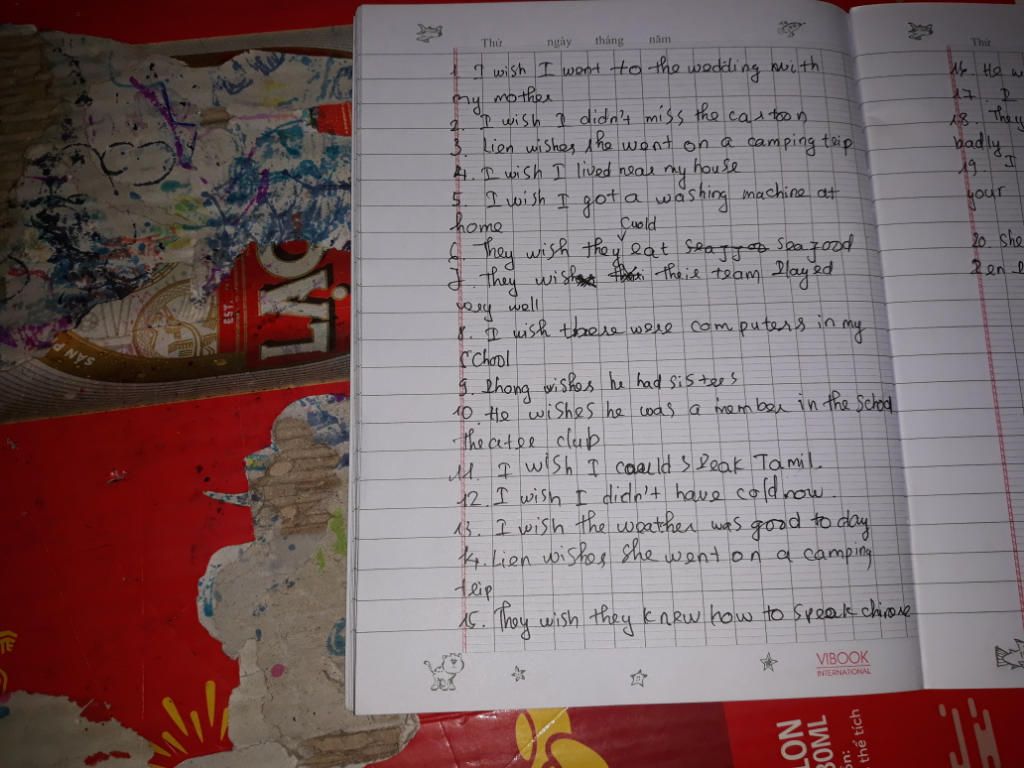 Thứ ngày tháng năm
1. I wish I went to the wedding with
my mother
2. I wish I didn't miss the cartoon
3. Lien wishes she went on a camping trip
4. I wish I lived near my house
5. I wish I got a washing machine at
home
could
6. They wish they eat seafood
7. They wish their team played
very well
8. I wish there were computers in my
school
9. Phong wishes he had sisters
10. He wishes he was a member in the school
theater club
11. I wish I could speak Tamil.
12. I wish I didn't have cold now.
13. I wish the weather was good today
14. Lien wishes she went on a camping
trip
15. They wish they knew how to speak chinese
VIBOOK
INTERNATIONAL
Thứ
16. He w
17. I
18. They
badly
19. I
your
20. She
LẠC
EST.
SẢN P
LON
30ML
thể tích